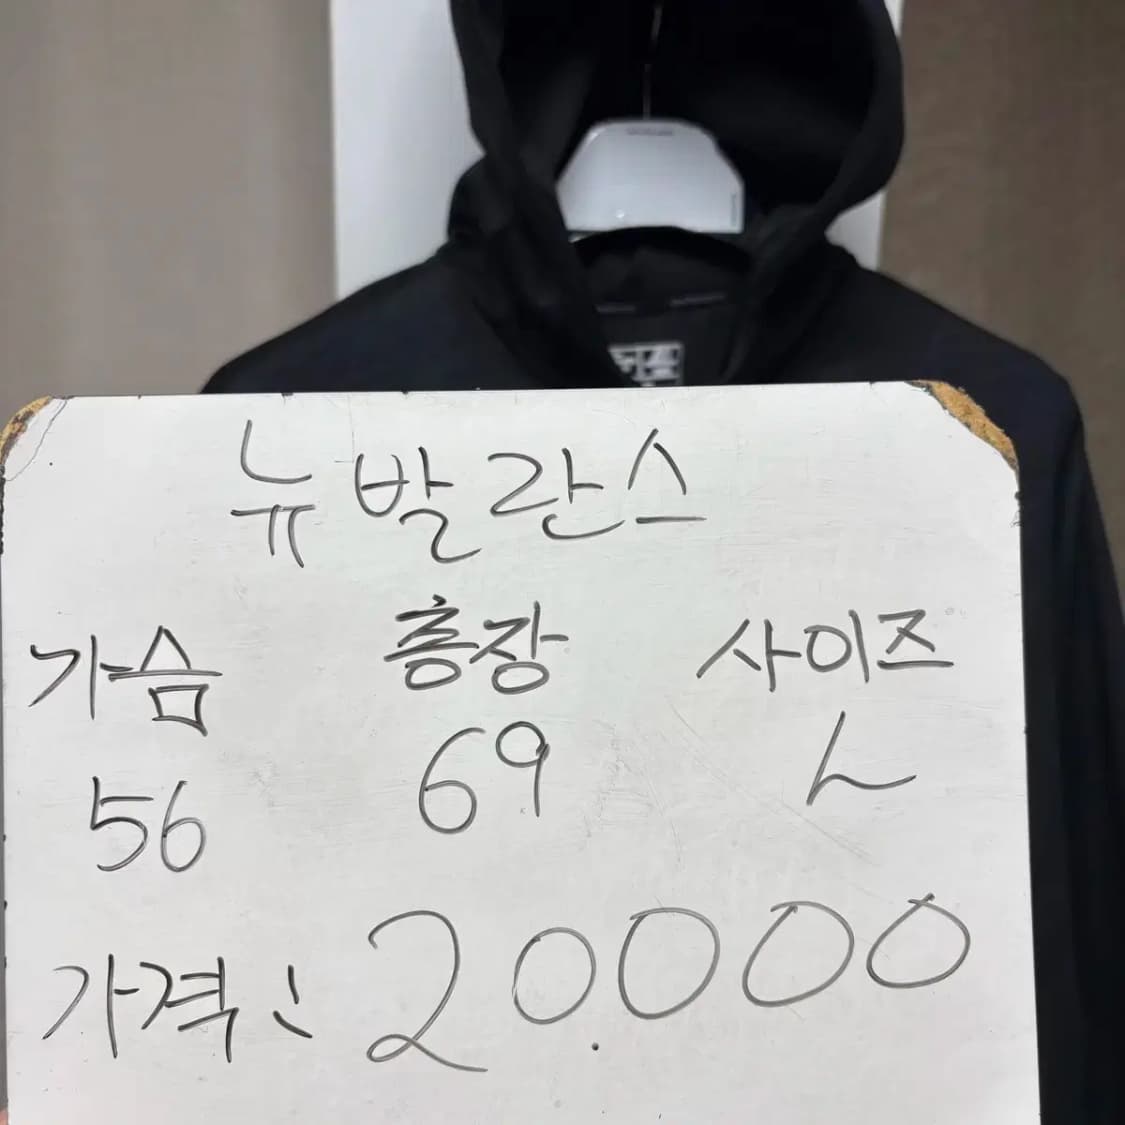 뉴발란스
가슴 총장 사이즈
56 69 L
가격: 20.000